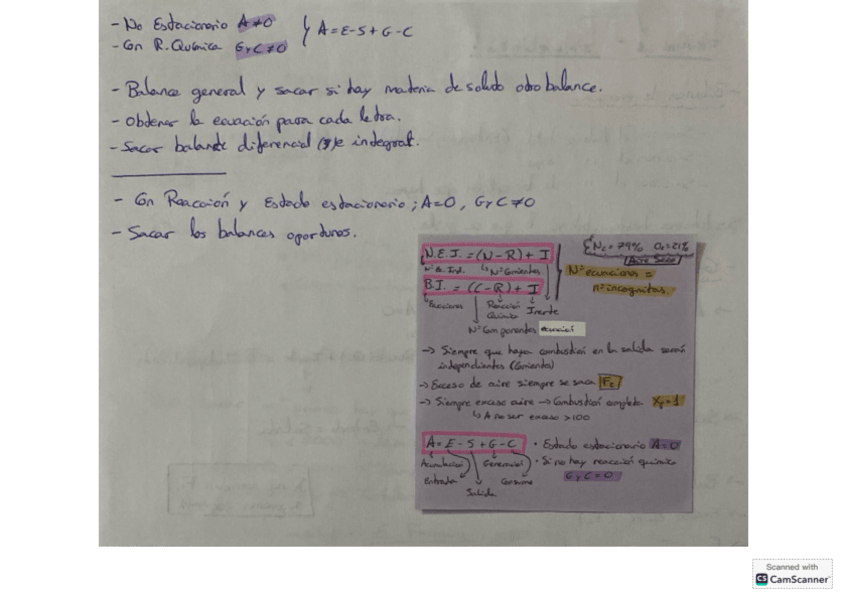 - No Estacionario A≠0 } A=E-S+G-C
- Con R. Química G y C ≠0
- Balance general y sacar si hay materia de solido otro balance.
- Obtener la ecuación para cada letra.
- Sacar balance diferencial e integral.
- Con Reacción y Estado estacionario; A=0, G y C ≠0
- Sacar los balances oportunos.
N.E.I. = (N-R) + I
Nº B. Ind. Nº Corrientes
B.I. = (C-R) + I
Ecuaciones Reacción Química Inerte
Nº Componentes
N2=79% O2=21%
Aire Seco
Nº ecuaciones =
nº incognitas.
→ Siempre que haya combustión en la salida
independientes (Corriente)
→ Exceso de aire siempre se saca
→ Siempre exceso aire → Combustión completa =1
↳ A no ser exceso >100
A=E-S+G-C
Acumulación Generación
Entrada Consumo
Salida
· Estado estacionario A=0
· Si no hay reacción química
G y C=0
Scanned with
CS CamScanner